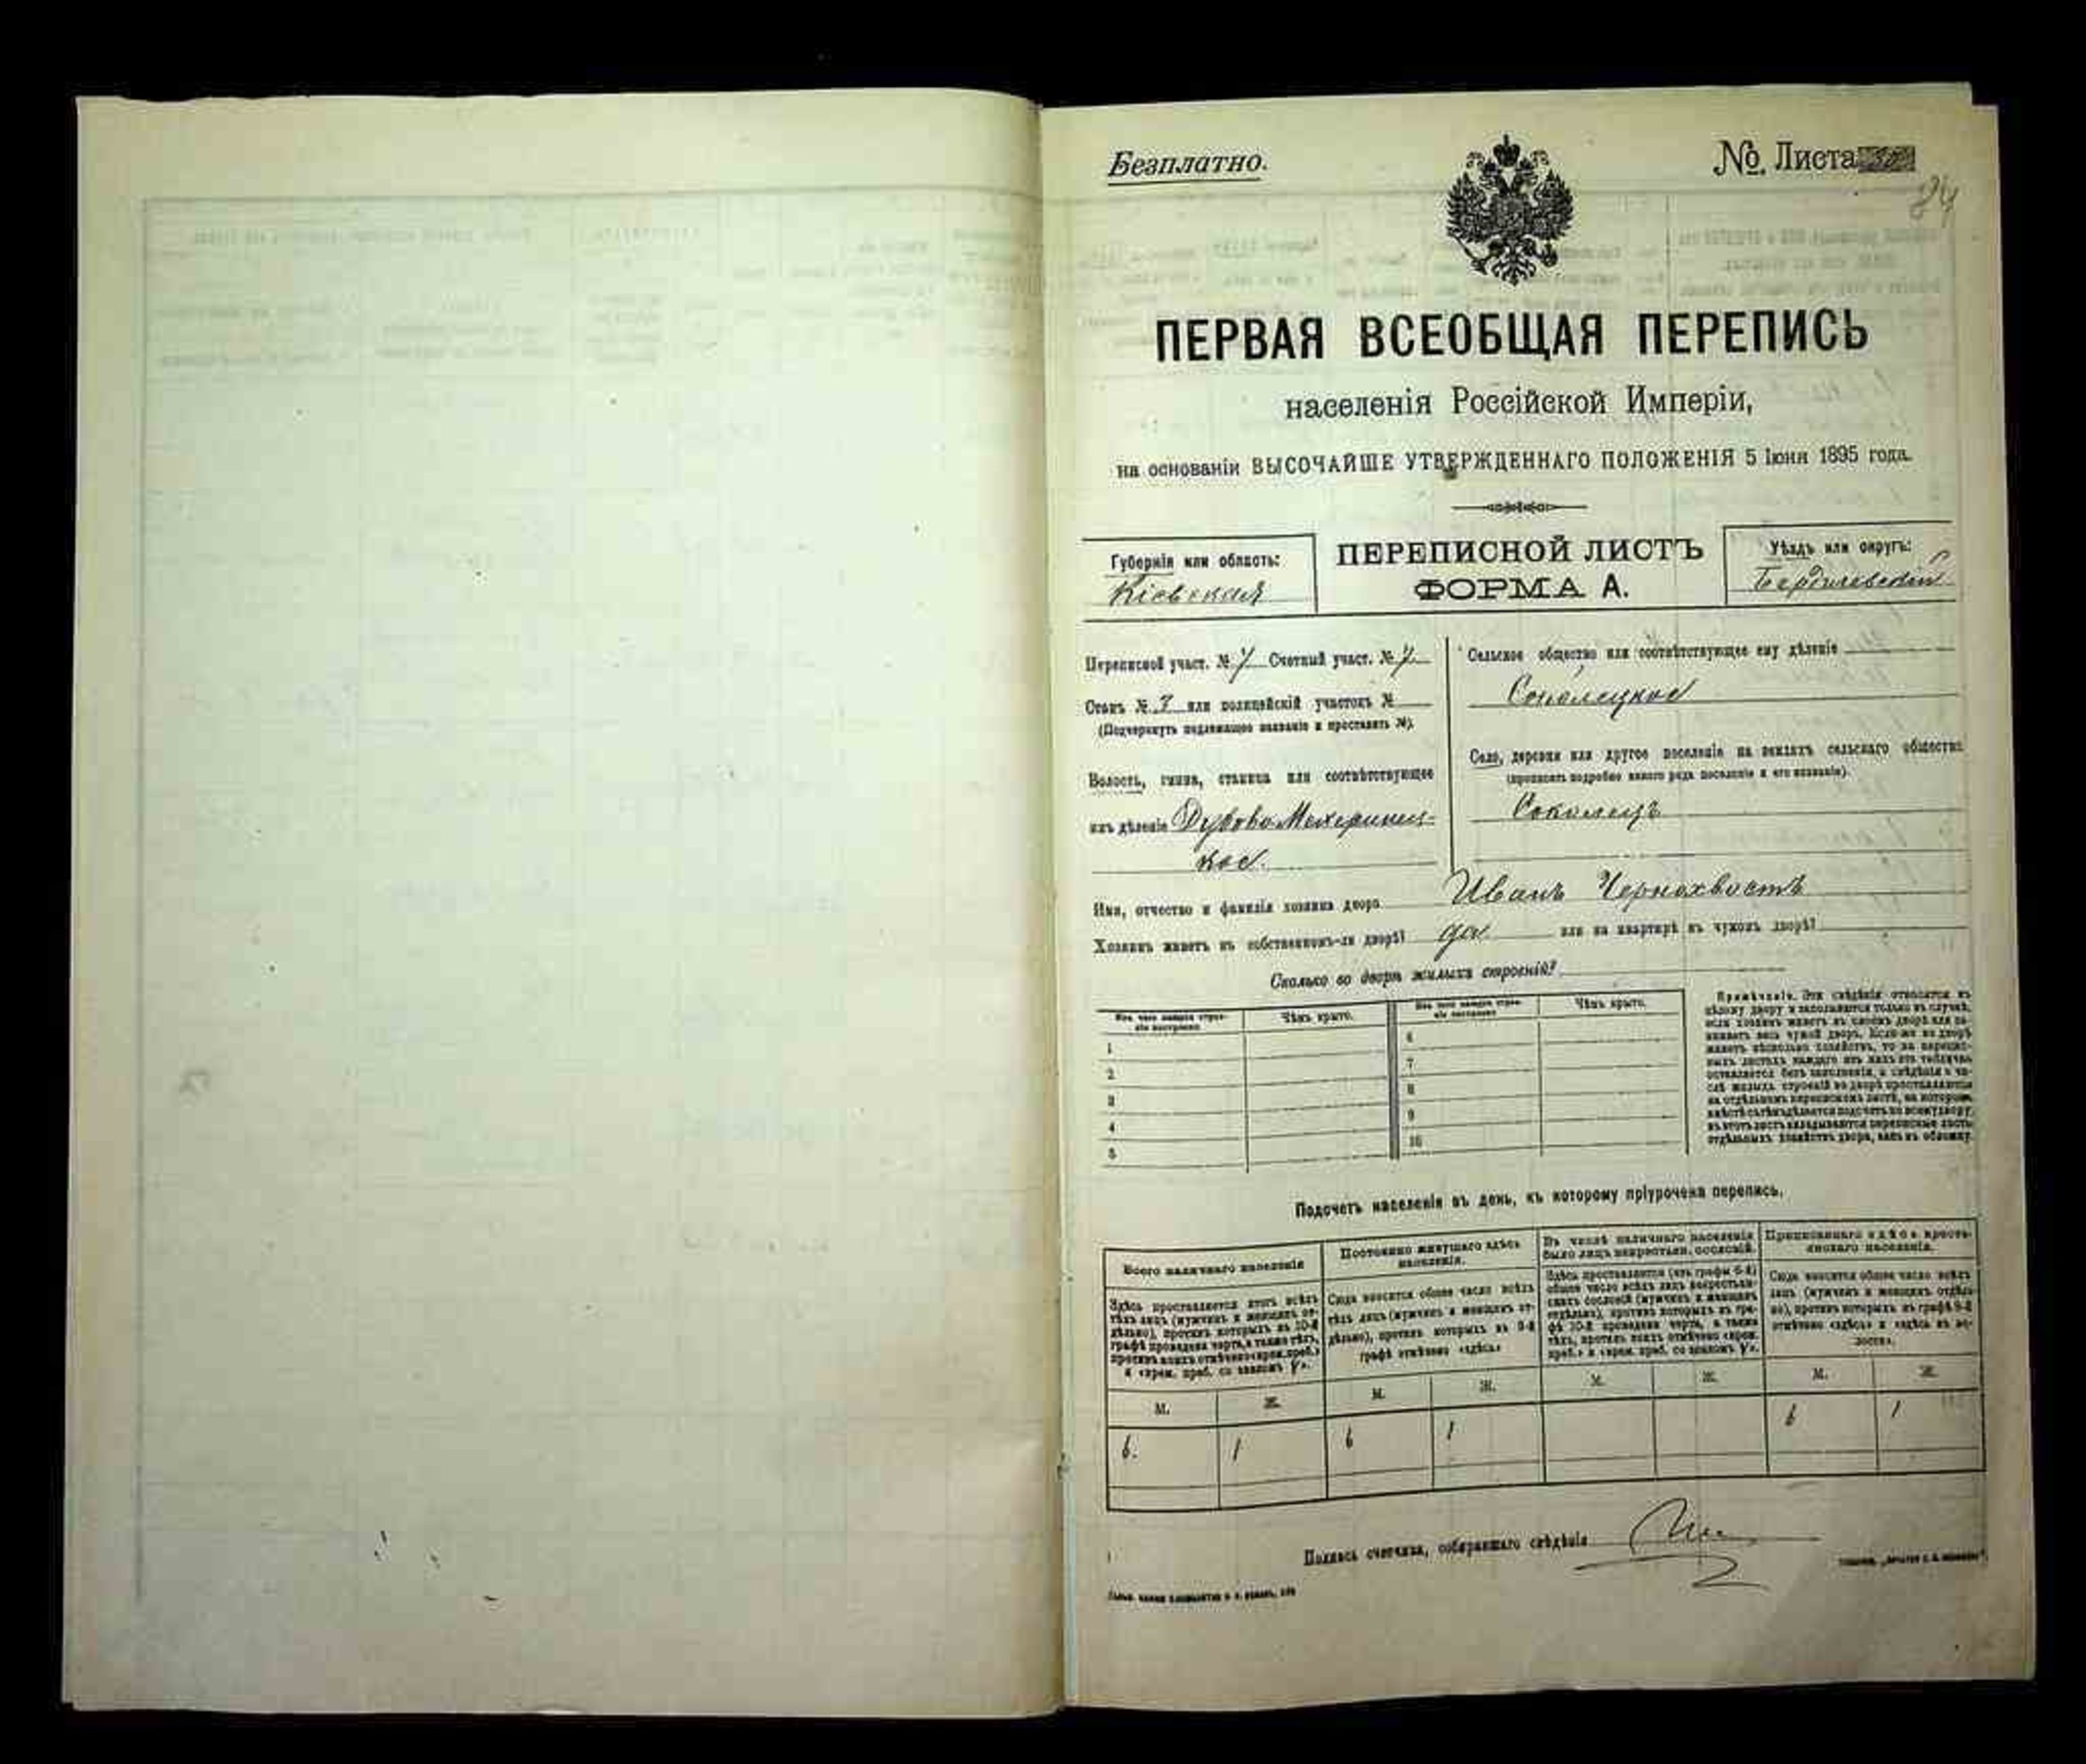 Безплатно.
№ Листа 30
84
ПЕРВАЯ ВСЕОБЩАЯ ПЕРЕПИСЬ
населенія Россійской Имперіи,
на основаніи ВЫСОЧАЙШЕ УТВЕРЖДЕННАГО ПОЛОЖЕНІЯ 5 Іюня 1895 года.
Губернія или область:
Кіевская
ПЕРЕПИСНОЙ ЛИСТЪ
ФОРМА А.
Уѣздъ или округъ:
Бердичевскій
Переписной участ. № 7 Счетный участ. № 7
Станъ № или полицейскій участокъ №
(Подчеркнуть надлежащее названіе и проставить №).
Волость, гмина, станица или соотвѣтствующее
имъ дѣленіе Дубово-Махаринец-
кое.
Сельское общество или соотвѣтствующее ему дѣленіе
Соколецкое
Село, деревня или другое поселеніе на земляхъ сельскаго общества
(прописать подробно какого рода поселеніе и его названіе).
Соколецъ
Имя, отчество и фамилія хозяина двора Иванъ Чернохвостъ
Хозяинъ живетъ въ собственномъ-ли дворѣ? да или на квартирѣ въ чужомъ дворѣ?
Сколько во дворѣ жилыхъ строеній?
Изъ чего каждое строе-
ніе построено.
Чѣмъ крыто.
Изъ чего каждое строе-
ніе построено.
Чѣмъ крыто.
1
2
3
4
5
6
7
8
9
10
Примѣчаніе. Эти свѣдѣнія относятся къ
цѣлому двору и заполняются только въ случаѣ,
если хозяинъ живетъ въ своемъ дворѣ или за-
нимаетъ весь чужой дворъ. Если-же во дворѣ
живетъ нѣсколько хозяйствъ, то на перепис-
ныхъ листахъ каждаго изъ нихъ эта табличка
оставляется безъ заполненія, а свѣдѣнія о чи-
слѣ жилыхъ строеній во дворѣ проставляются
на отдѣльномъ переписномъ листѣ, на которомъ
вмѣстѣ съ тѣмъ дѣлается подсчетъ по всему двору;
въ этотъ листъ вкладываются переписные листы
отдѣльныхъ хозяйствъ двора, какъ въ обложку.
Подсчетъ населенія въ день, къ которому пріурочена перепись.
Всего наличнаго населенія
Здѣсь проставляется итогъ всѣхъ
тѣхъ лицъ (мужчинъ и женщинъ от-
дѣльно), противъ которыхъ въ 10-й
графѣ проведена черта, а также тѣхъ,
противъ коихъ отмѣчено «врем. преб.»
и «врем. преб. со знакомъ V».
Постоянно живущаго здѣсь
населенія.
Сюда вносится общее число всѣхъ
тѣхъ лицъ (мужчинъ и женщинъ от-
дѣльно), противъ которыхъ въ 9-й
графѣ отмѣчено «здѣсь»
Въ числѣ наличнаго населенія
было лицъ некрестьян. сословій.
Здѣсь проставляется (изъ графы 6-й)
общее число всѣхъ лицъ некрестьян-
скихъ сословій (мужчинъ и женщинъ
отдѣльно), противъ которыхъ въ гра-
фѣ 10-й проведена черта, а также
тѣхъ, противъ коихъ отмѣчено «врем.
преб.» и «врем. преб. со знакомъ V».
Приписаннаго здѣсь кресть-
янскаго населенія.
Сюда вносится общее число всѣхъ
лицъ (мужчинъ и женщинъ отдѣль-
но), противъ которыхъ въ графѣ 8-й
отмѣчено «здѣсь» и «здѣсь въ во-
лости».
М. Ж. М. Ж. М. Ж. М. Ж.
6. 1 6 1 6 1
Подпись счетчика, собиравшаго свѣдѣнія